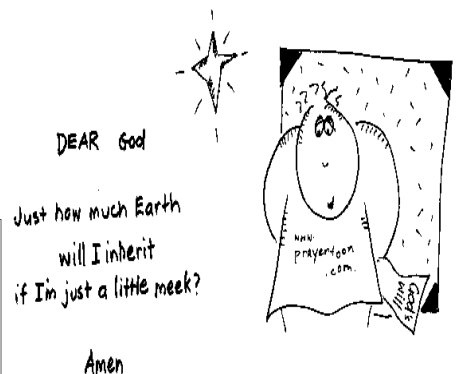 DEAR God
Just how much Earth
will I inherit
if I'm just a little meek?
Amen
www.
prayertoon
.com.
God's
Will